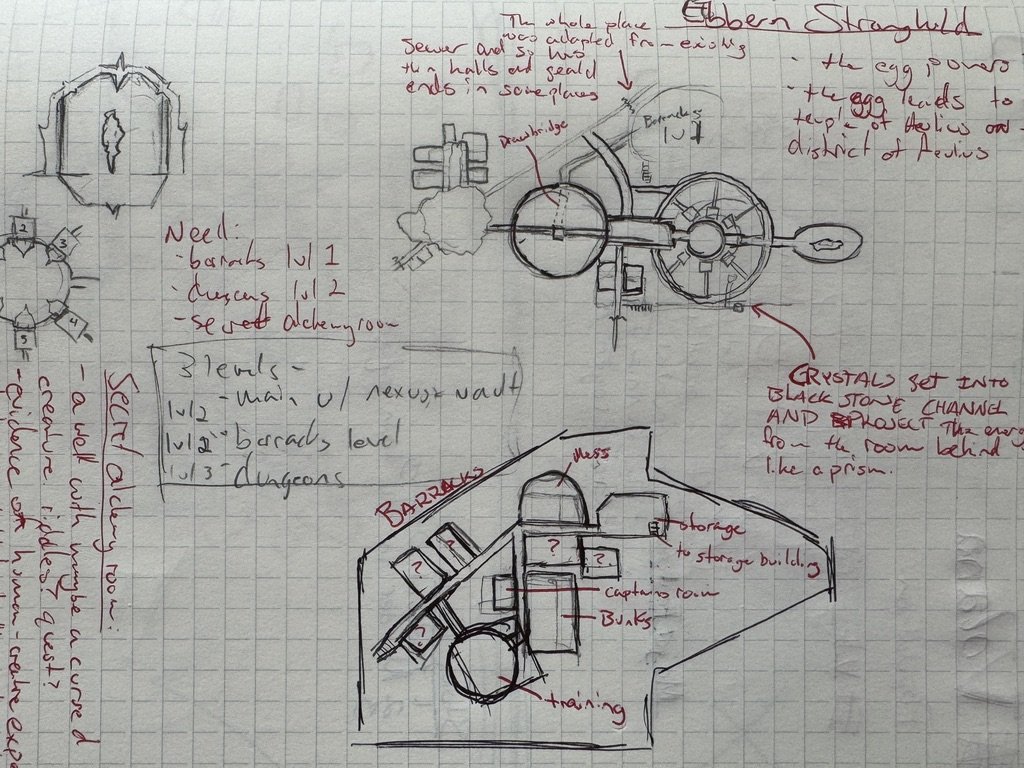 Ebbern Stronghold
The whole place
was adapted from existing
sewer and so has
thin halls and seald
ends in some places
- the egg powers
- the egg leads to
temple of Aelius and
district of Aelius
Barracks
lvl 1
Drawbridge
3
2
3
4
5
Need:
- barracks lvl 1
- dungeons lvl 2
- secret alchemy room
3 levels -
lvl 2 - main w/ nexus vault
lvl 2 - barracks level
lvl 3 - dungeons
CRYSTALS SET INTO
BLACK STONE CHANNEL
AND PROJECT The energy
from the room behind
like a prism.
Secret alchemy room:
- a well with maybe a cursed
creature. riddles? quest?
- evidence of human-creature expe
BARRACKS
Mess
storage
to storage building
?
?
?
?
?
captains room
Bunks
training